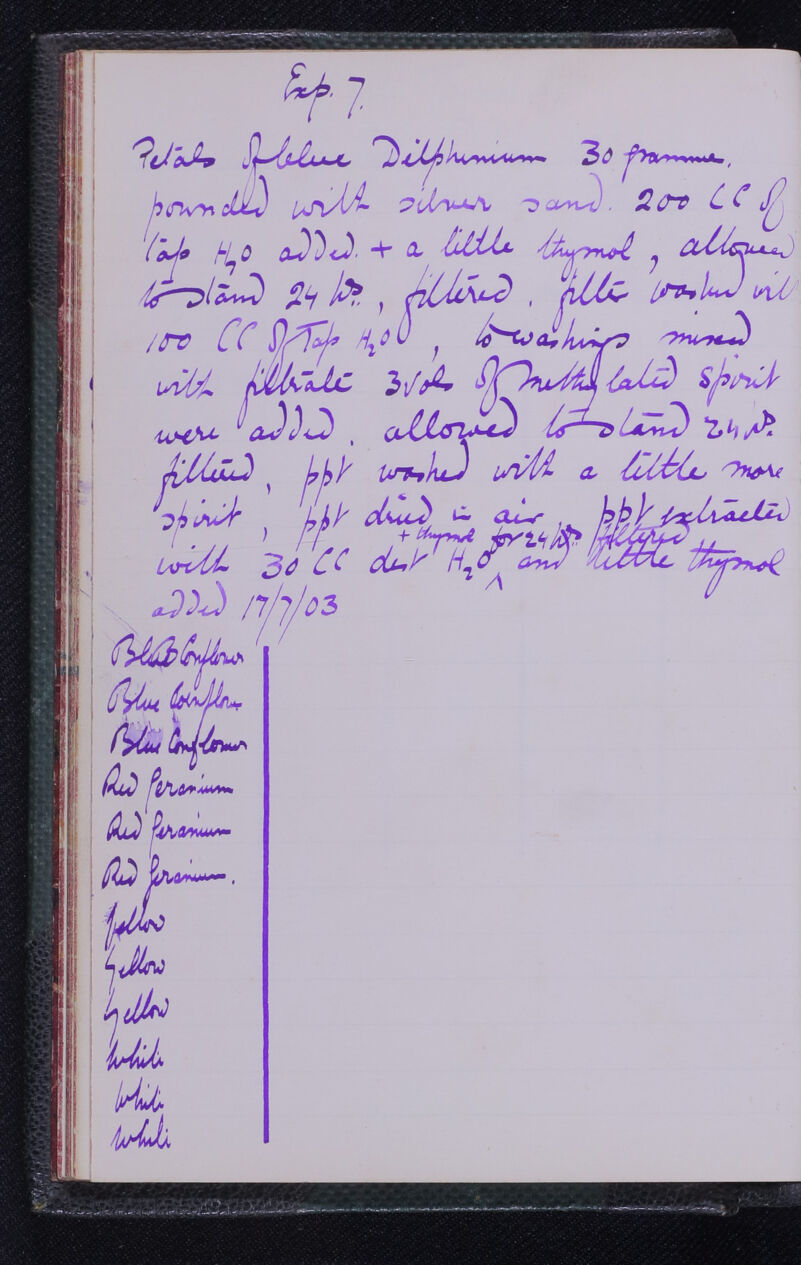 Exp. 7.
Petals of blue Delphinium 30 gramme.
pounded with silver sand. 200 CC of
tap H2O added. + a little thymol, allowed
to stand 24 hrs., filtered. filter washed with
100 CC of Tap H2O, to washings mixed
with filtrate 3 vols of methylated spirit
were added. allowed to stand 24 hrs.
filtered, ppt washed with a little more
spirit, ppt dried in air ppt extracted
+ thymol for 24 hrs. filtered
with 30 CC dist H2O ^ and little thymol
added 17/7/03
Blue Cornflower
Blue Cornflower
Blue Cornflower
Red Geranium
Red Geranium
Red Geranium.
Yellow
Yellow
Yellow
White
White
White